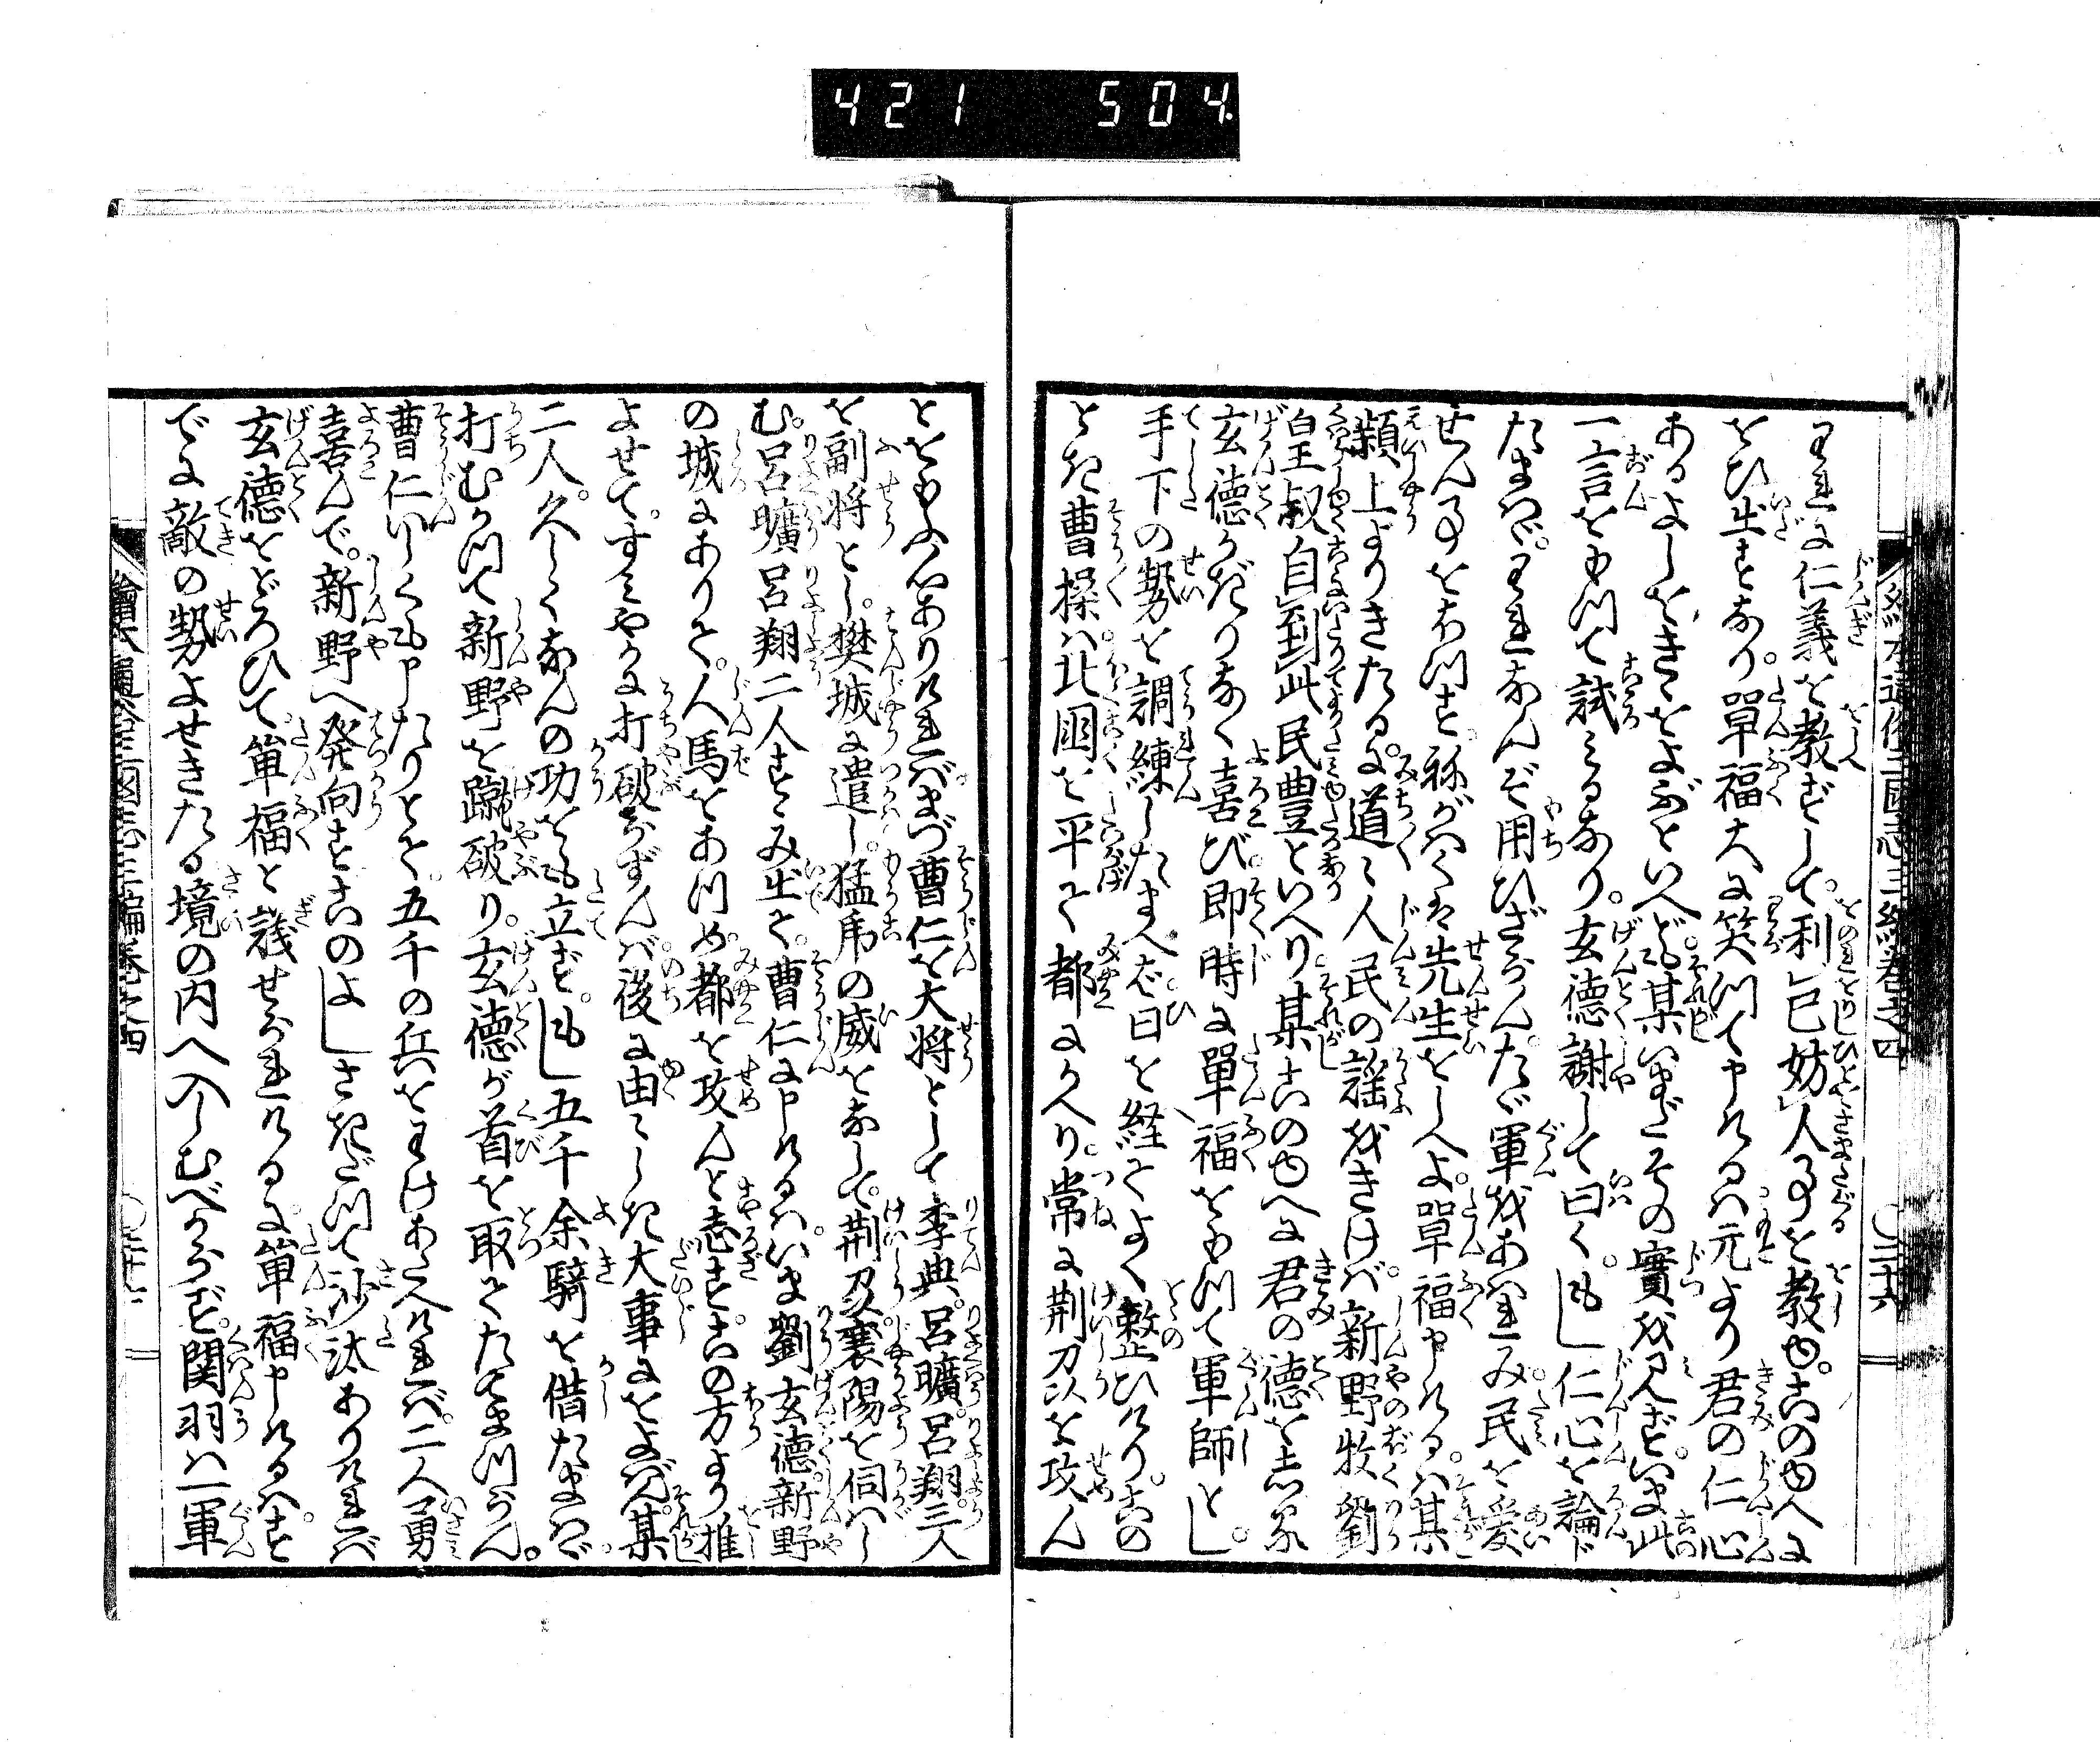 421 504.
われに仁義を教ずして。利己妨人事を教ゆ。このゆへに
をひ出すなり。單福大に笑つて申けるは元より君の仁心
あるよしをきゝをよぶといへども。某いまだその實を見ず。いま此
一言をもつて試みるなり。玄德謝して曰く。もし仁心を論ド
たまはゞ。われなんぞ用ひざらん。たゞ軍をあはれみ民を爱
せん事をおもつす。祢がはくは先生をしへよ。單福申けるは某
潁上よりきたるに。道々人民の謡をきけば。新野牧劉
皇叔自到此民豊といへり某このゆへに君の德をしる
玄德かぎりなく喜び。即時に單福をもつて軍師とし。
手下の勢を調練したまへば。日を経てよく整ひけり。この
とき曹操は。北国を平て都にかへり。常に荆州を攻ん
とをもふ心ありければ。まづ曹仁を大将として李典。呂曠。呂翔。三人
を副将とし。樊城に遣し。猛虎の威をなして。荆及襄陽を伺はし
む。呂曠呂翔二人すゝみ出て。曹仁に申けるは。いま劉玄德。新野
の城にありて。人馬をあつめ。都を攻んと志す。この方より推
よせて。すみやかに打破らずんば。後に由々しき大事にをよばん。某
二人。久しくなんの功をも立ず。もし五千余騎を借たまはゞ。
打むかつて新野を蹴破り。玄德が首を取てたてまつらん。
曹仁いしくも申たりとて。五千の兵をわけあたへければ。二人勇
喜んで。新野へ発向すこのよしさきだつて沙汰ありければ
玄德をどろひて。單福と議せられけるに。單福申けるは。す
でに敵の勢よせきたる境の内へ入しむべからず。関羽は一軍
繪本通俗三国志三編巻之四